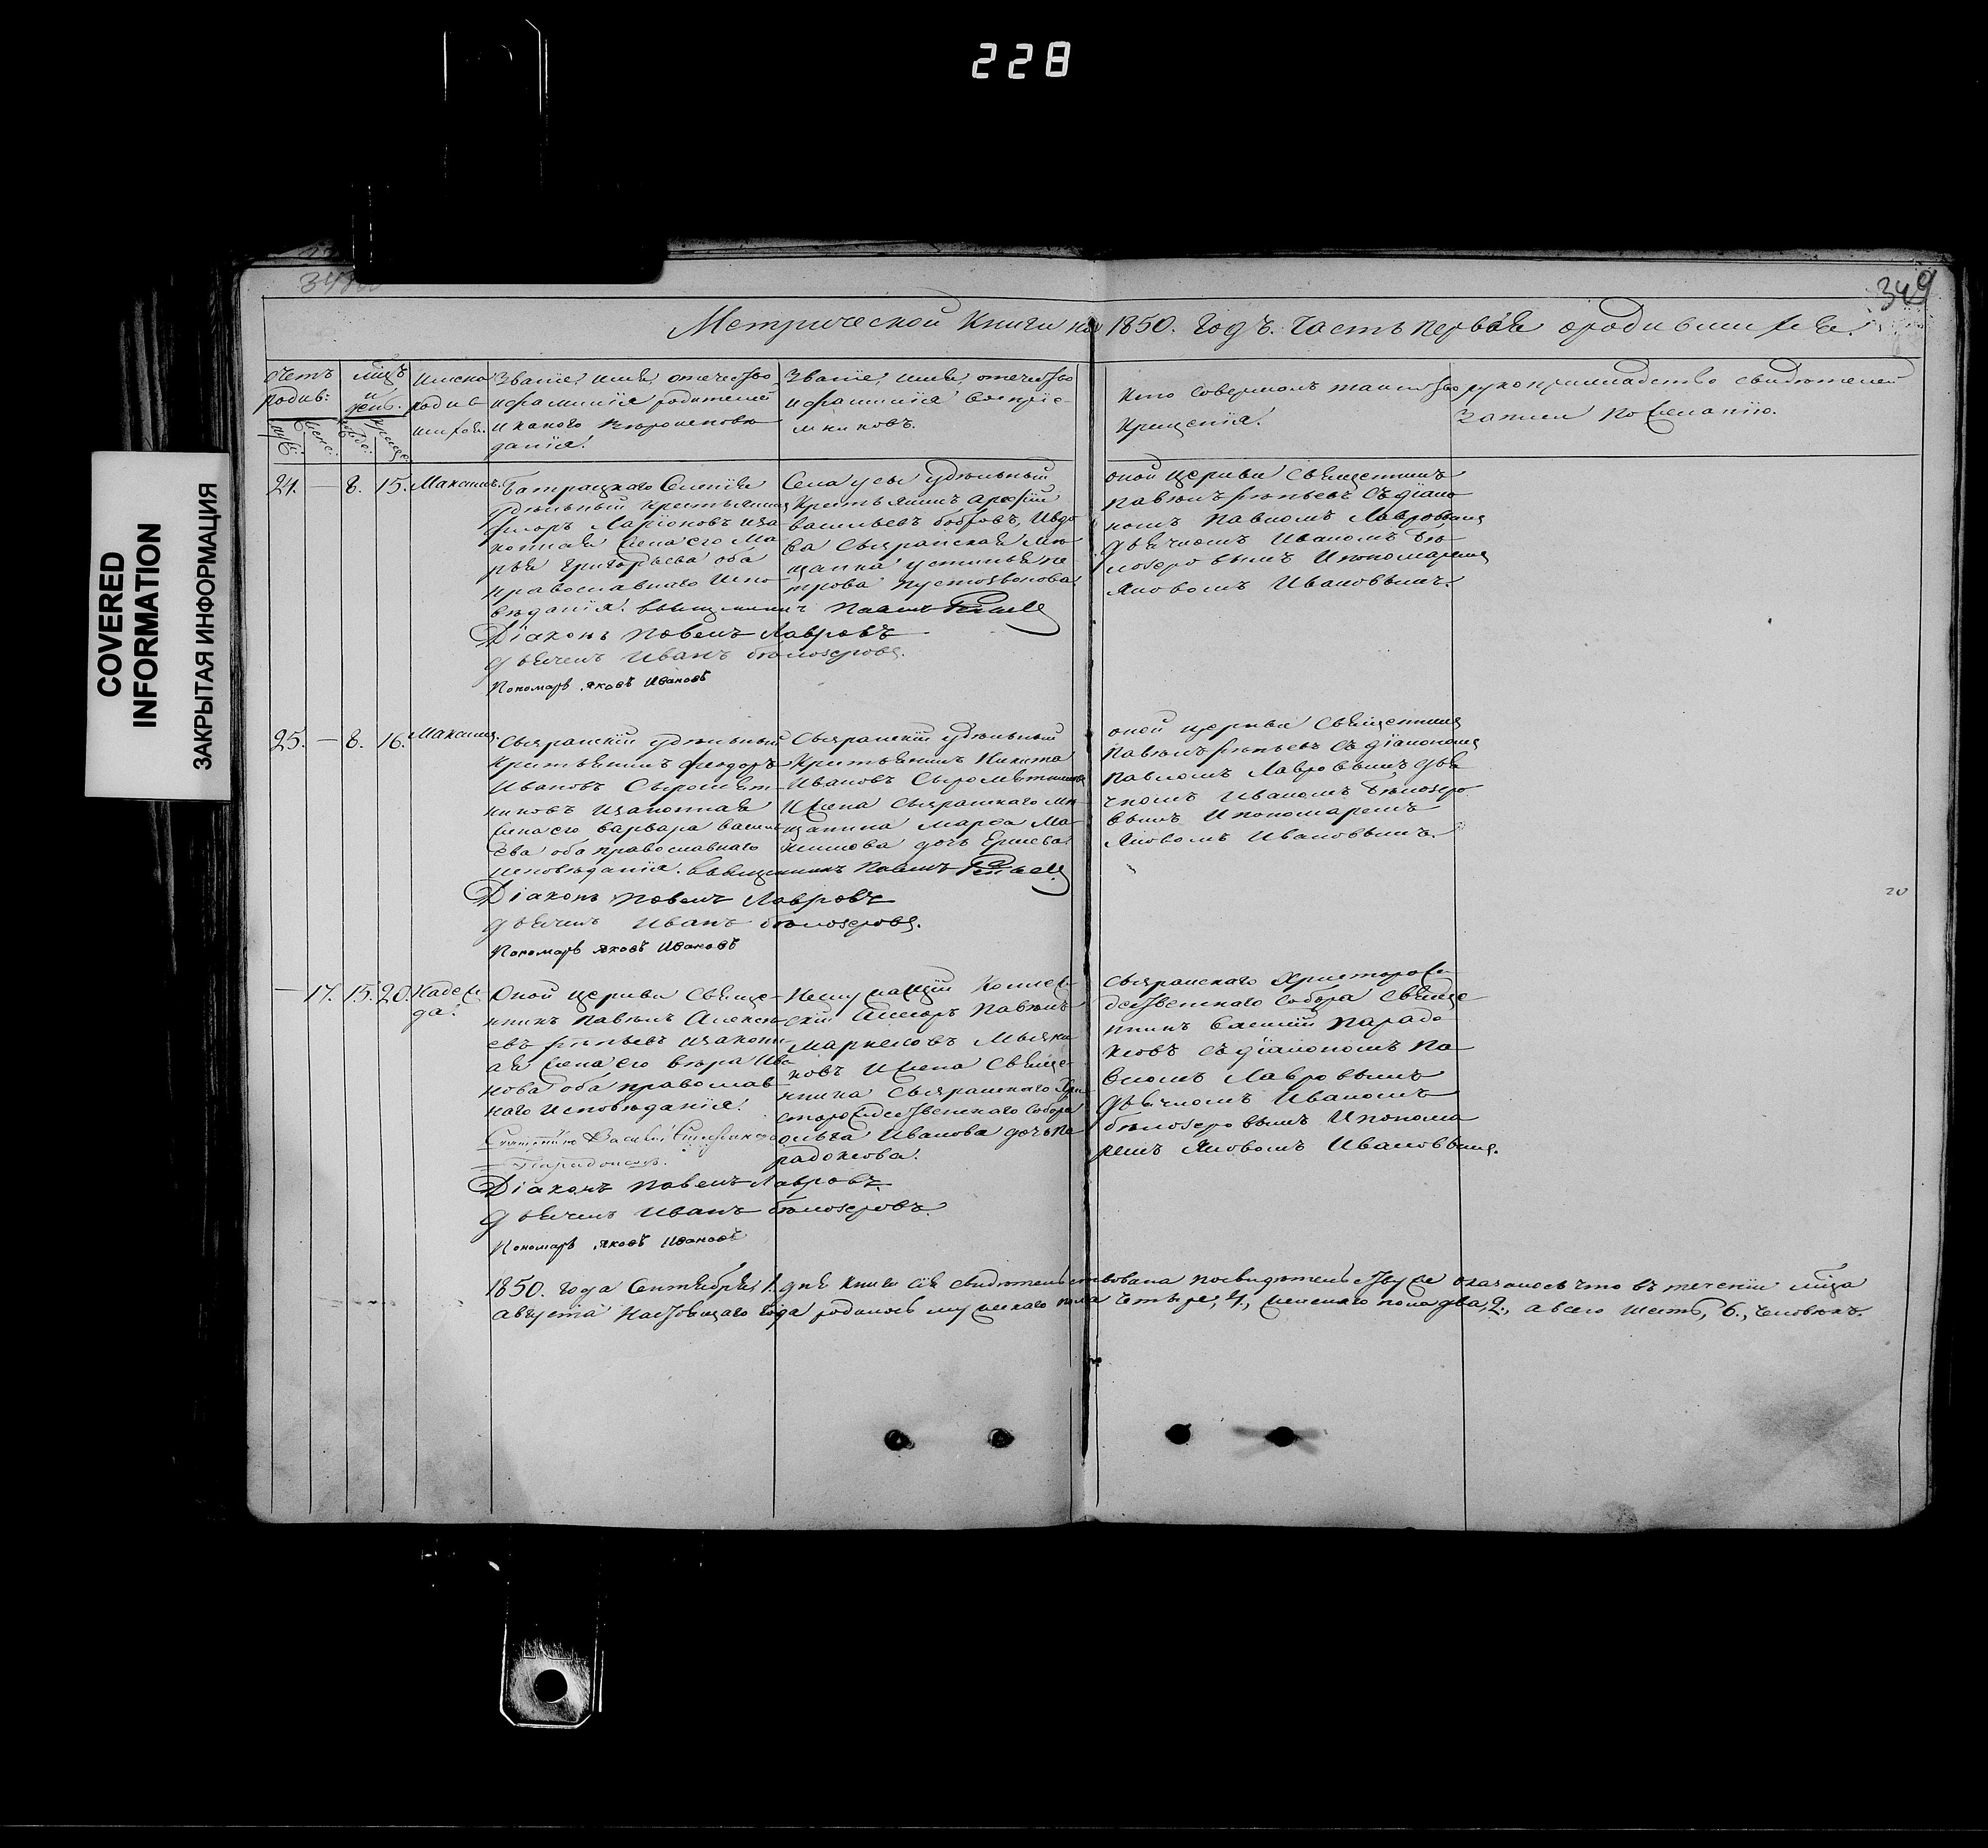 228
COVERED
INFORMATION
ЗАКРЫТАЯ ИНФОРМАЦИЯ
349
Метрической Книги на 1850. годъ. Часть первая о родившихся.
Счетъ
родив:
мцъ
и
день.
Имена
родив
шихся.
Званіе, имя, отечество,
и фамилія родителей
и какого вѣроисповѣ
данія.
Званіе, имя, отечество
и фамилія воспріе-
мниковъ.
Кто совершалъ таинство
Крещенія.
рукоприкладство свидѣтелей
записи по желанію.
24. — 8. 15. Максимъ.
Батрацкаго Селенія
удѣльный крестьянинъ
Флоръ Ларіоновъ и за
конная жена его Ма
рья Григорьева оба
православнаго испо
вѣданія. Священникъ Павелъ
Діаконъ Павелъ Лавровъ
Дьячекъ Иванъ Бѣлозеровъ.
Пономарь Яковъ Ивановъ
Села Усы удѣльный
крестьянинъ Арефій
Васильевъ Бобровъ, Вдо
ва Сызранская мѣ
щанка Устинья Пе
трова Пустозвонова.
оной церкви Священникъ
Павелъ съ діако
номъ Павломъ Лавровымъ
дьячкомъ Иваномъ Бѣ
лозеровымъ и пономаремъ
Яковомъ Ивановымъ.
25. — 8. 16. Максимъ.
Сызранскій удѣльный
крестьянинъ Феодоръ
Ивановъ Сыромят
никовъ и законная
жена его Варвара Василь
ева оба православнаго
исповѣданія. Священникъ Павелъ
Діаконъ Павелъ Лавровъ
Дьячекъ Иванъ Бѣлозеровъ.
Пономарь Яковъ Ивановъ
Сызранскій удѣльный
крестьянинъ Никита
Ивановъ Сыромятниковъ
и жена Сызранскаго мѣ
щанина Марѳа Ма
ксимова дочь Ершева.
оной церкви Священникъ
Павелъ съ діакономъ
Павломъ Лавровымъ дья
чкомъ Иваномъ Бѣлозеро
вымъ и пономаремъ
Яковомъ Ивановымъ.
20
— 17. 15. 20. Надеж
да.
Оной церкви Священ-
никъ Павелъ Алексѣ
евъ и законн
ая жена его Вѣра Ива
нова оба православ
наго исповѣданія.
Священникъ Василій
Парадоксовъ.
Діаконъ Павелъ Лавровъ
Дьячекъ Иванъ Бѣлозеровъ.
Пономарь Яковъ Ивановъ
Неслужащій Коллеж
скій Асессоръ Павелъ
Маркеловъ Мызни
ковъ и жена Священ
ника Сызранскаго Хри
сторождественскаго Собора
Ольга Иванова дочь Па
радоксова.
Сызранскаго Христорож
дественскаго Собора Священ
никъ Василій Парадо
ксовъ съ діакономъ Па
вломъ Лавровымъ
дьячкомъ Иваномъ
Бѣлозеровымъ и понома
ремъ Яковомъ Ивановымъ.
1850. года Сентября 1. дня книги сія свидѣтельствована по свидѣтельству же оказалось что въ теченіи мца
августа настоящаго года родилось мужескаго пола четыре, 4., женскаго пола два, 2., а всего шесть, 6., человѣкъ.